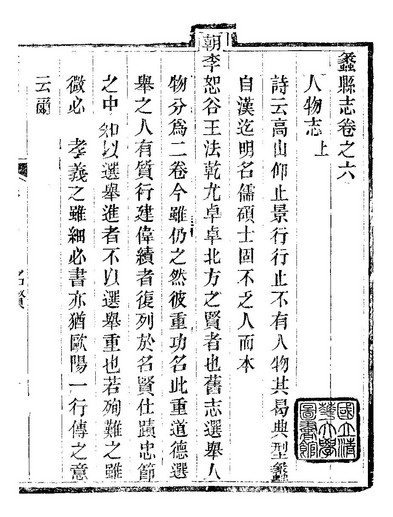 蠡縣志卷之六
人物志 上
詩云高山仰止景行行止不有人物其曷典型蠡
自漢迄明名儒碩士固不乏人而本
朝李恕谷王法乾尤卓卓北方之賢者也舊志選舉人
物分爲二卷今雖仍之然彼重功名此重道德選
舉之人有質行建偉績者復列於名賢仕蹟忠節
之中知以選舉進者不以選舉重也若殉難之雖
微必 孝義之雖細必書亦猶歐陽一行傳之意
云爾
國立清
華大學
圖書館